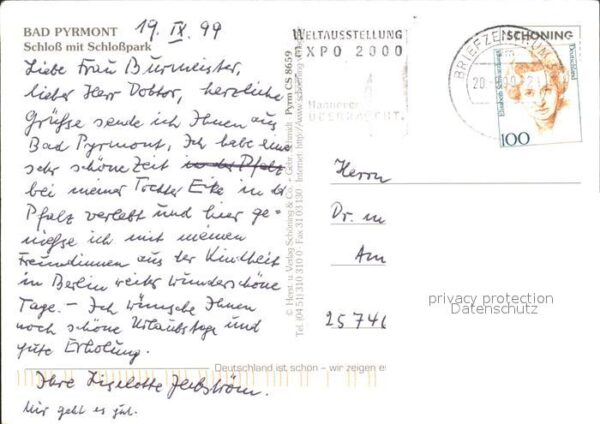 BAD PYRMONT
Schloß mit Schloßpark
19. IX. 99
Liebe Frau Burmeister,
lieber Herr Doktor, herzliche
Grüsse sende ich Ihnen aus
Bad Pyrmont, Ich habe eine
sehr schöne Zeit in der Pfalz
bei meiner Tochter Eike in der
Pfalz verlebt und hier ge-
nieße ich mit meinen
Freundinnen aus der Kindheit
in Berlin weiter wunderschöne
Tage. – Ich wünsche Ihnen
noch schöne Urlaubstage und
gute Erholung.
Ihre Liselotte
Mir geht es gut.
Deutschland ist schön – wir zeigen es
© Herst. u. Verlag Schöning & Co. + Gebr. Schmidt Pyrm CS 8659
Tel. (04 51) 310 310 0 · Fax 31 03 130 Internet: http://www.schoening-verlag
WELTAUSSTELLUNG
EXPO 2000
Hannover
BRIEFZENTRUM
SCHÖNING
Deutschland
Elisabeth Schwarzhaupt
100
Herrn
Dr. m
Am
25746
privacy protection
Datenschutz